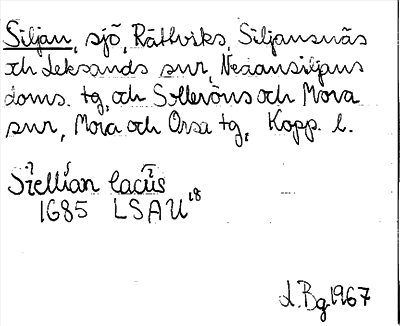 Siljan, sjö, Rättviks, Siljansnäs
och Leksands snr, Nedansiljans
doms. tg, och Solleröns och Mora
snr, Mora och Orsa tg, Kopp. l.
Siellian lacus
1685 LSAU 18
L.Bg 1967